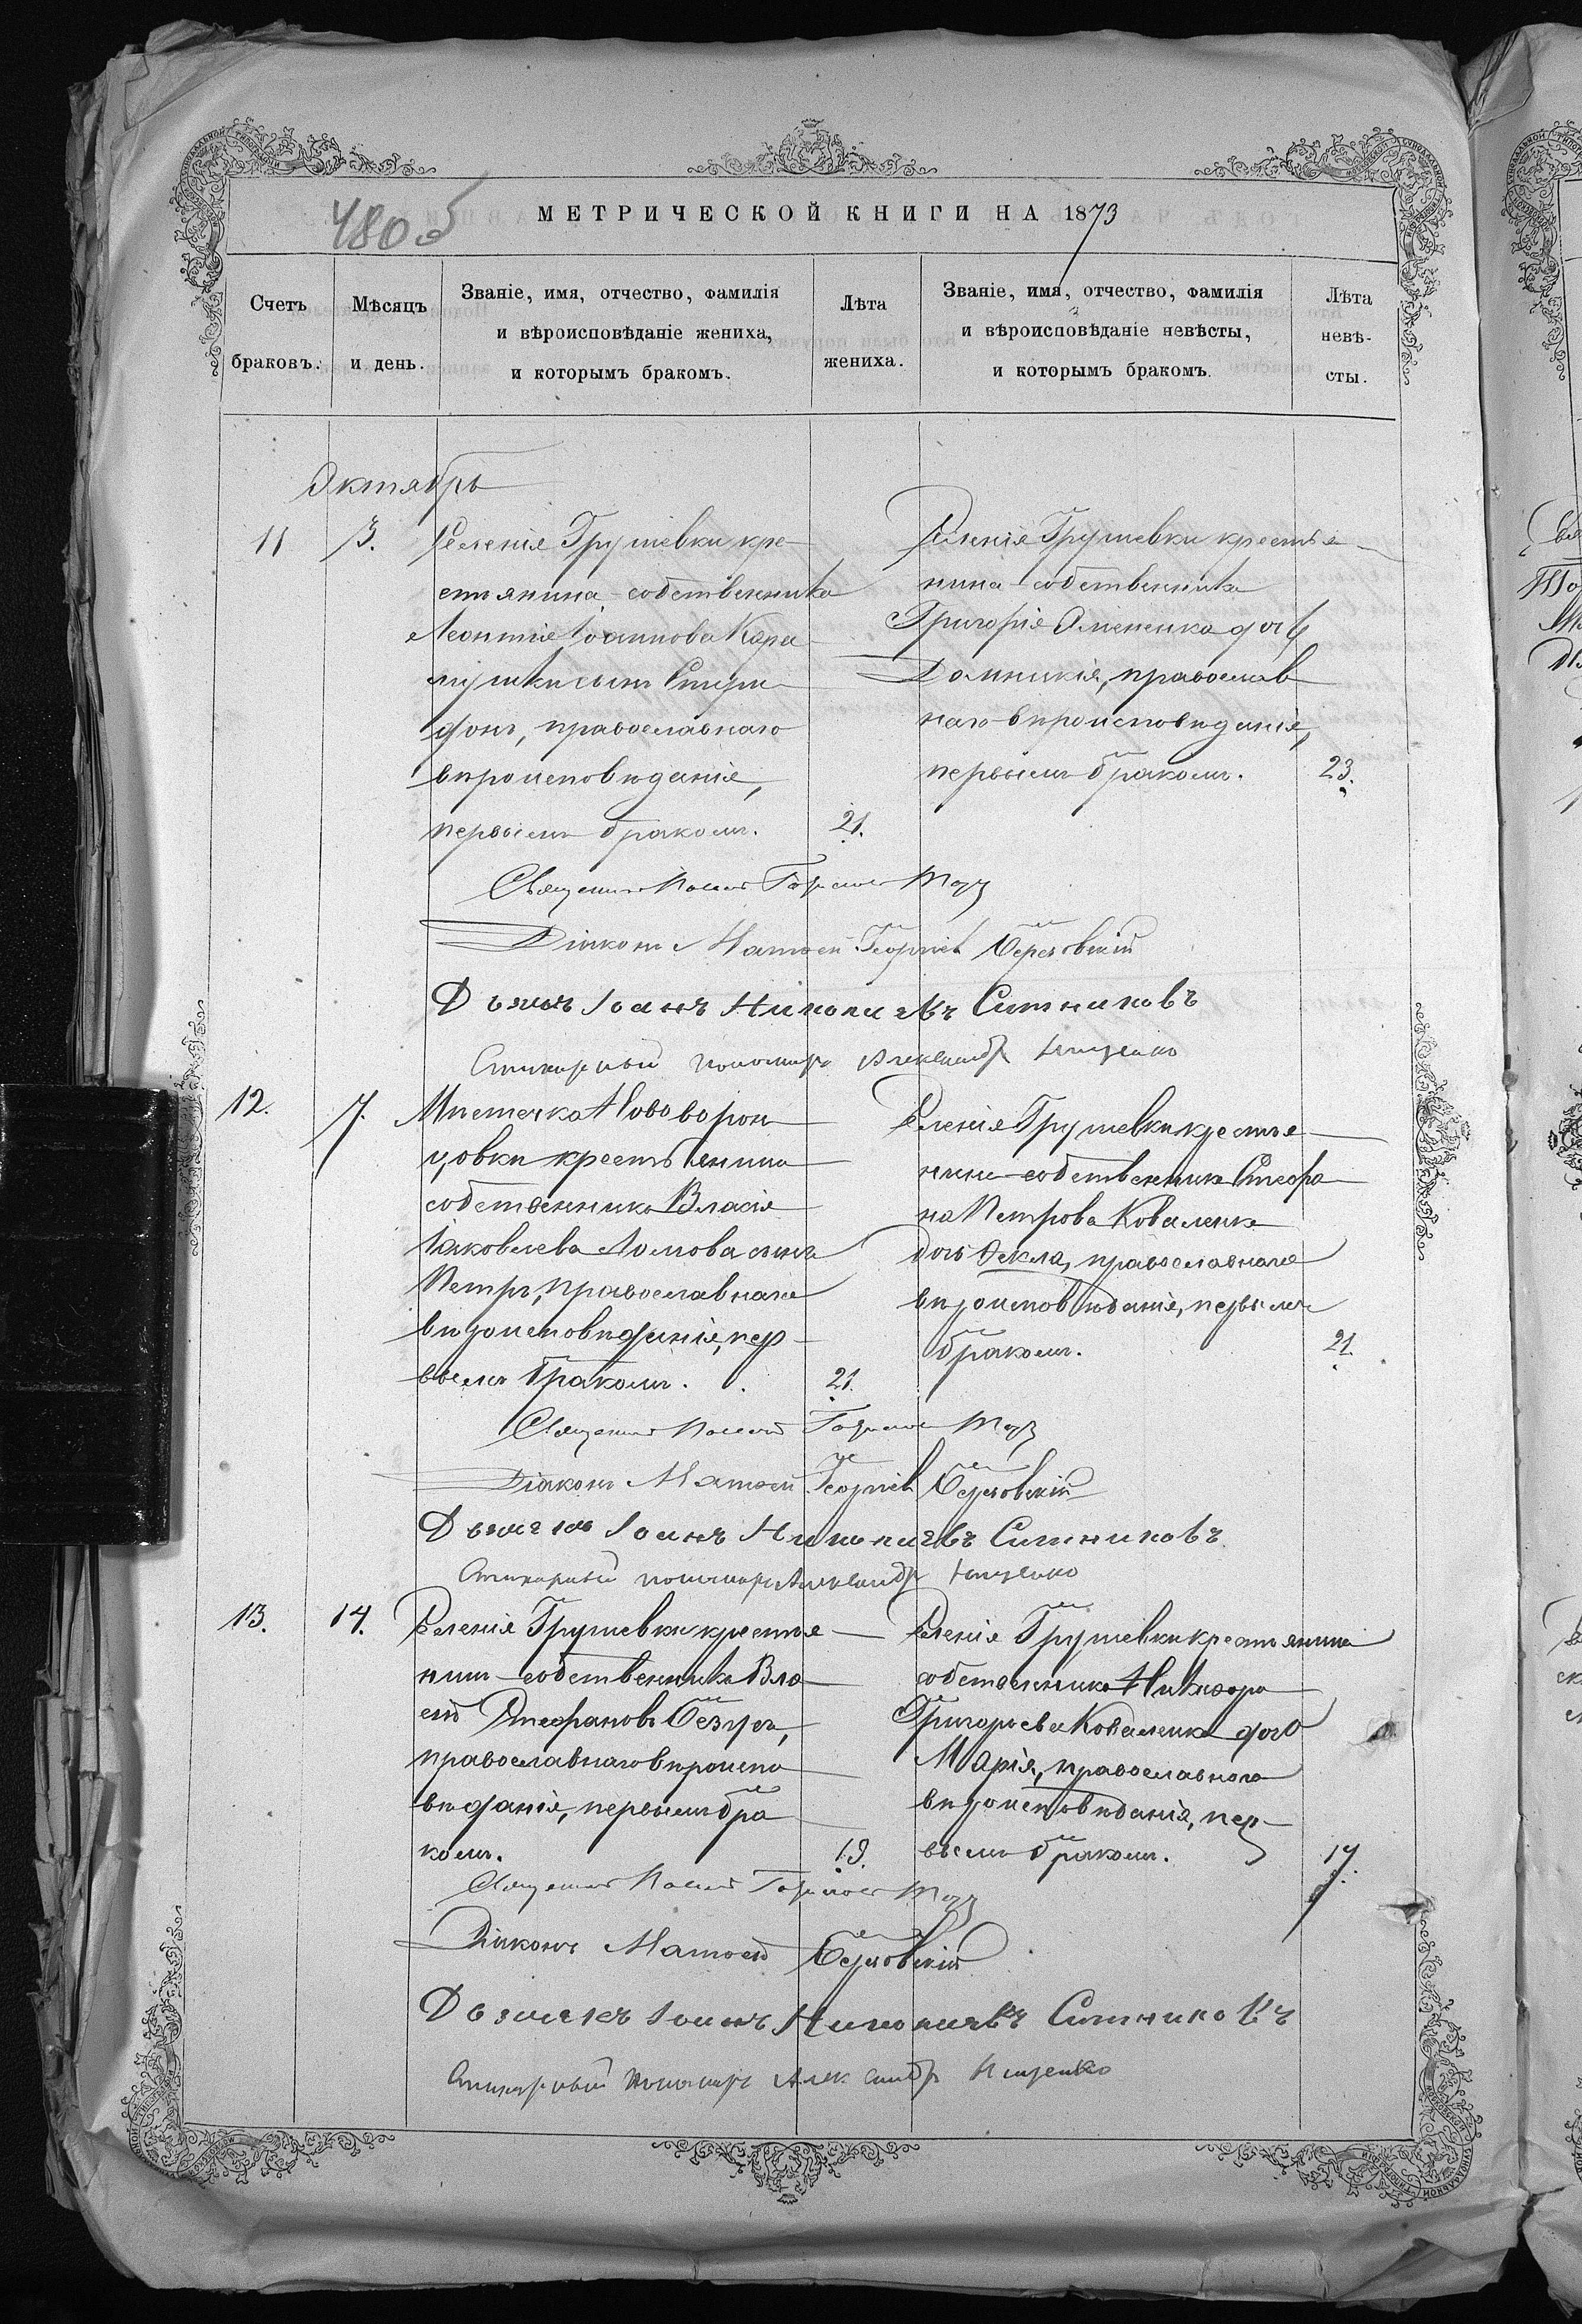 480 об
МЕТРИЧЕСКОЙ КНИГИ НА 1873
Счетъ браковъ.
Мѣсяцъ и день.
Званіе, имя, отчество, фамилія
и вѣроисповѣданіе жениха,
и которымъ бракомъ.
Лѣта
жениха.
Званіе, имя, отчество, фамилія
и вѣроисповѣданіе невѣсты,
и которымъ бракомъ.
Лѣта
невѣ-
сты.
Октябрь
11
3.
Селенія Грушевки кре-
стьянина-собственника
Леонтія Іоаннова Кара
сынъ Спири-
донъ, православнаго
вѣроисповѣданія,
первымъ бракомъ.
21.
Селенія Грушевки крестья-
нина-собственника
Григорія дочь
Домникія, православ
наго вѣроисповѣданія,
первымъ бракомъ.
23.
Священникъ
Діаконъ Матѳей Георгіевъ Березовскій
Дьячекъ Іоанъ Ситниковъ
пономарь Александръ Ищенко
12.
7.
Мѣстечка Нововорон-
цовки крестьянина
собственника Власія
Іаковлева Ломова сынъ
Петръ, православнаго
вѣроисповѣданія, пер-
вымъ бракомъ.
21.
Селенія Грушевки крестья-
нина-собственника Стефа-
на Петрова Коваленка
дочь Ѳекла, православнаго
вѣроисповѣданія, первымъ
бракомъ.
21.
Священникъ
Діаконъ Матѳей Георгіевъ Березовскій
Дьячекъ Іоанъ Ситниковъ
пономарь Александръ Ищенко
13.
14.
Селенія Грушевки крестья-
нинъ-собственника Вла-
сій Стефановъ
православнаго вѣроиспо-
вѣданія, первымъ бра-
комъ.
19.
Селенія Грушевки крестьянина
собственника Никифора
Григорьева Коваленка дочь
Марія, православнаго
вѣроисповѣданія, пер-
вымъ бракомъ.
17.
Священникъ
Діаконъ Матѳей Березовскій
Дьячекъ Іоанъ Ситниковъ
пономарь Александръ Ищенко